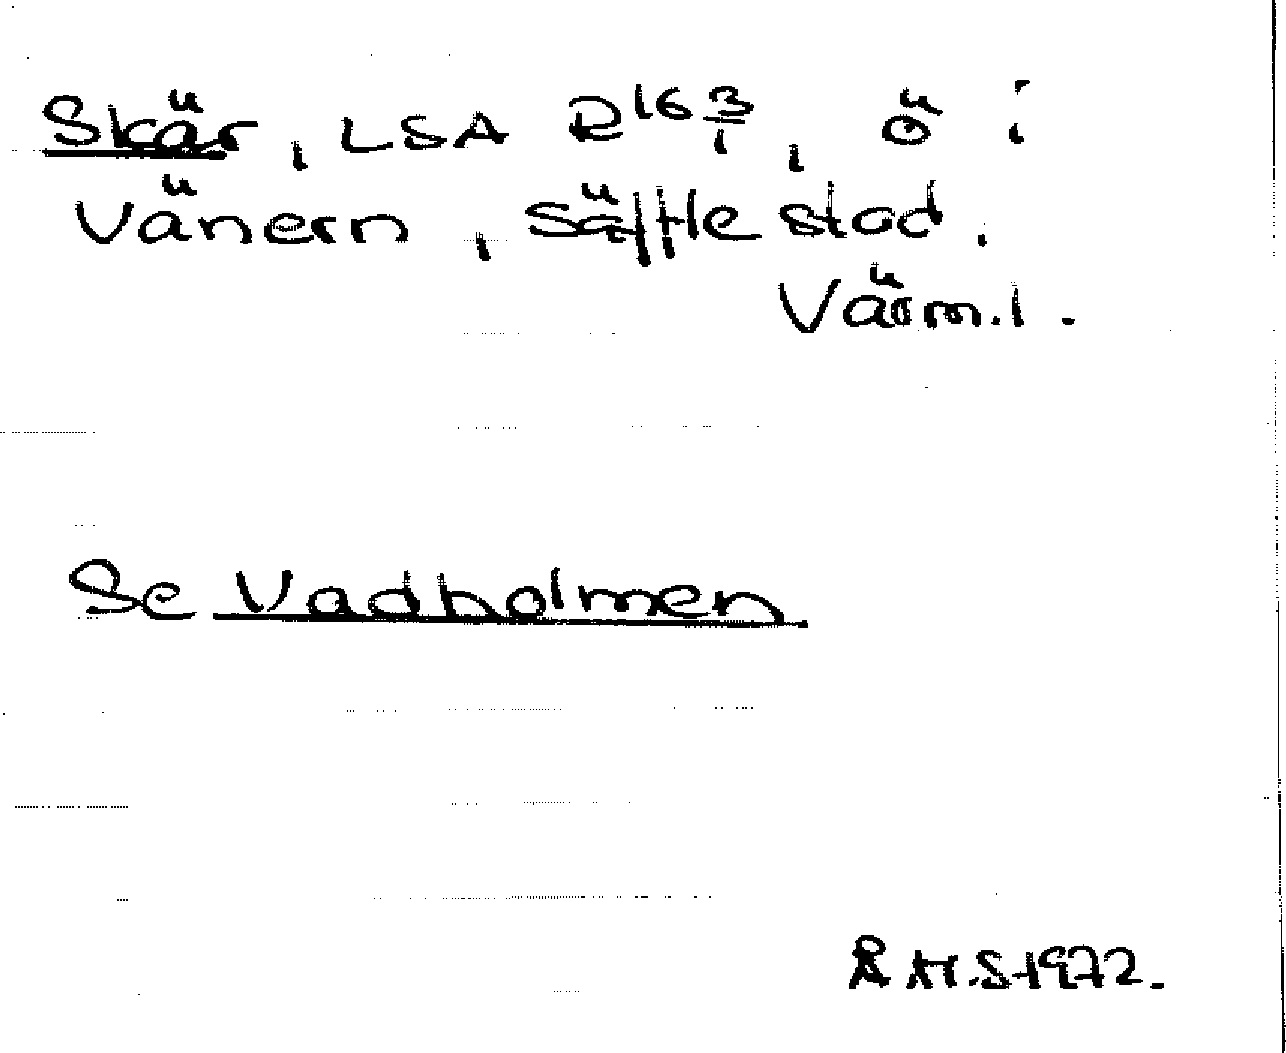 Skär, LSA R16 3/1, ö i
Vänern, Säffle stad.
Värml.
Se Vadholmen
1972.